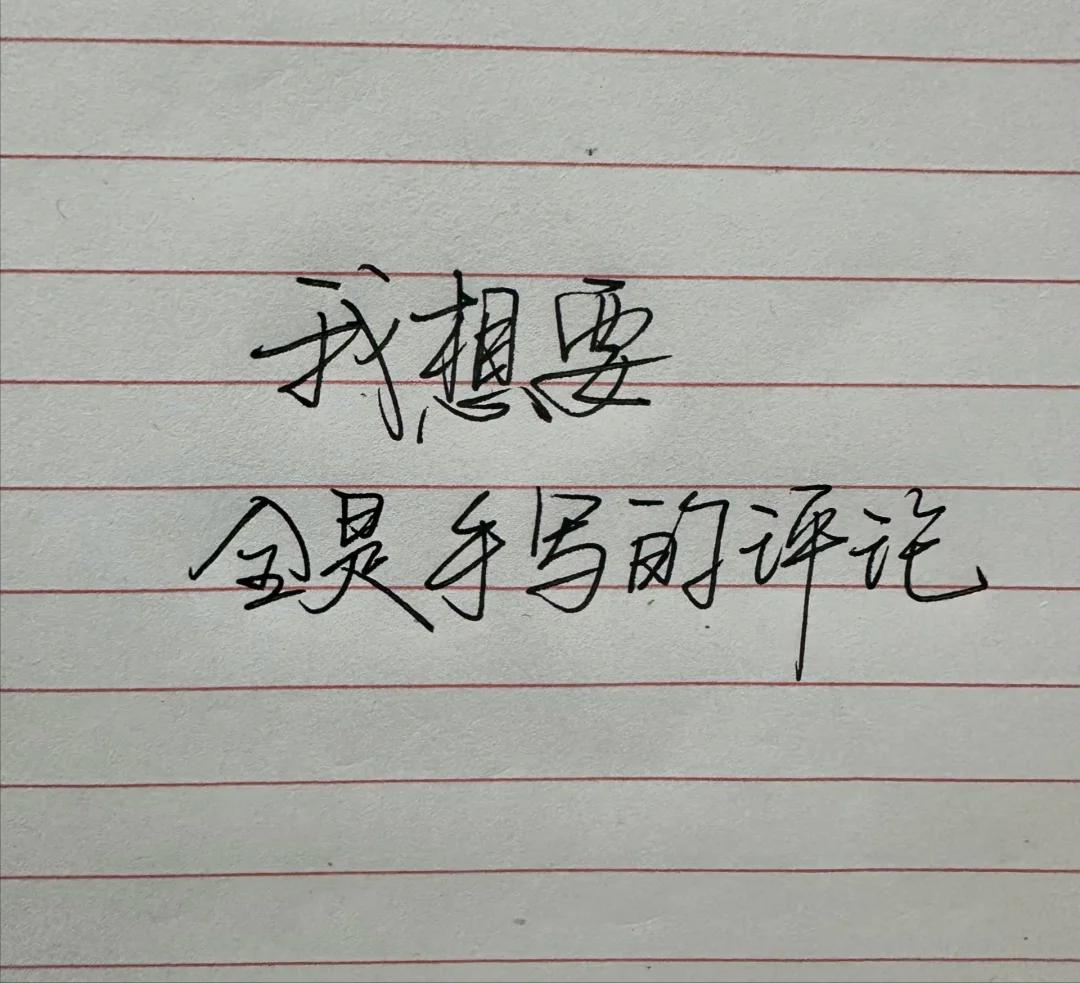 我想要
全是手写的评论